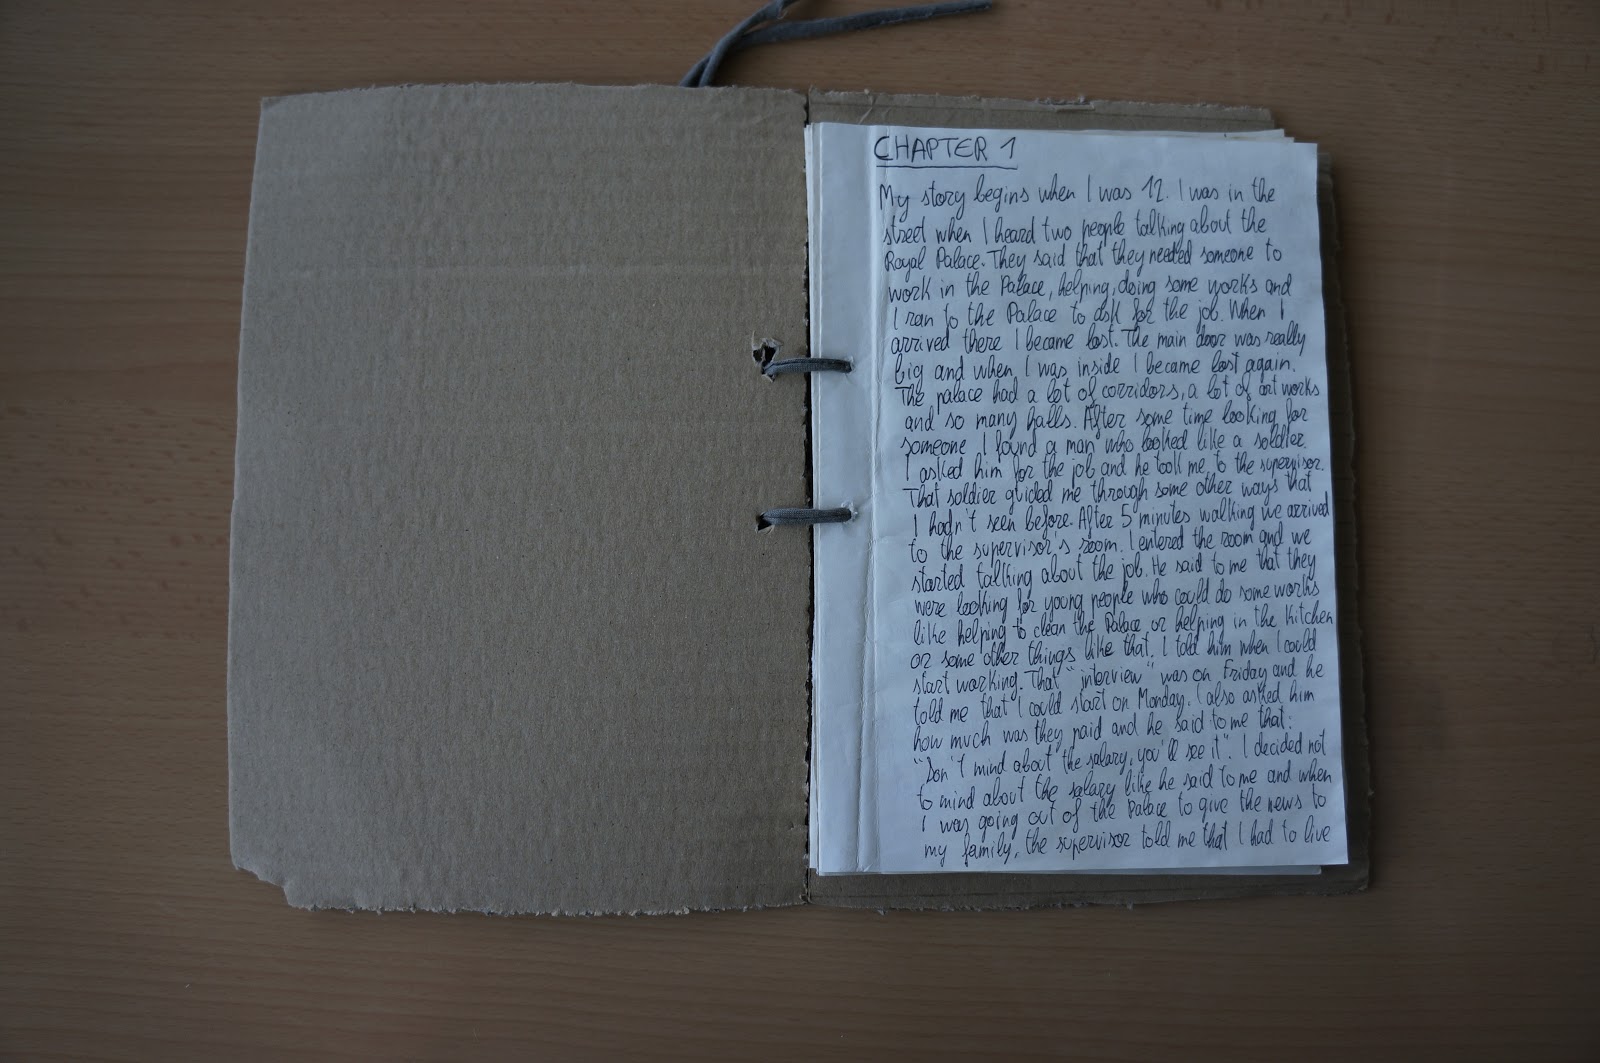 CHAPTER 1
My story begins when I was 12. I was in the
street when I heard two people talking about the
Royal Palace. They said that they needed someone to
work in the Palace, helping, doing some works and
I ran to the Palace to ask for the job. When I
arrived there I became lost. The main door was really
big and when I was inside I became lost again.
The palace had a lot of corridors, a lot of art works
and so many halls. After some time looking for
someone I found a man who looked like a soldier.
I asked him for the job and he took me to the supervisor.
That soldier guided me through some other ways that
I hadn't seen before. After 5 minutes walking we arrived
to the supervisor's room. I entered the room and we
started talking about the job. He said to me that they
were looking for young people who could do some works
like helping to clean the Palace or helping in the kitchen
or some other things like that. I told him when I could
start working. That "interview" was on Friday and he
told me that I could start on Monday. I also asked him
how much was they paid and he said to me that:
"Don't mind about the salary, you'll see it". I decided not
to mind about the salary like he said to me and when
I was going out of the Palace to give the news to
my family, the supervisor told me that I had to live